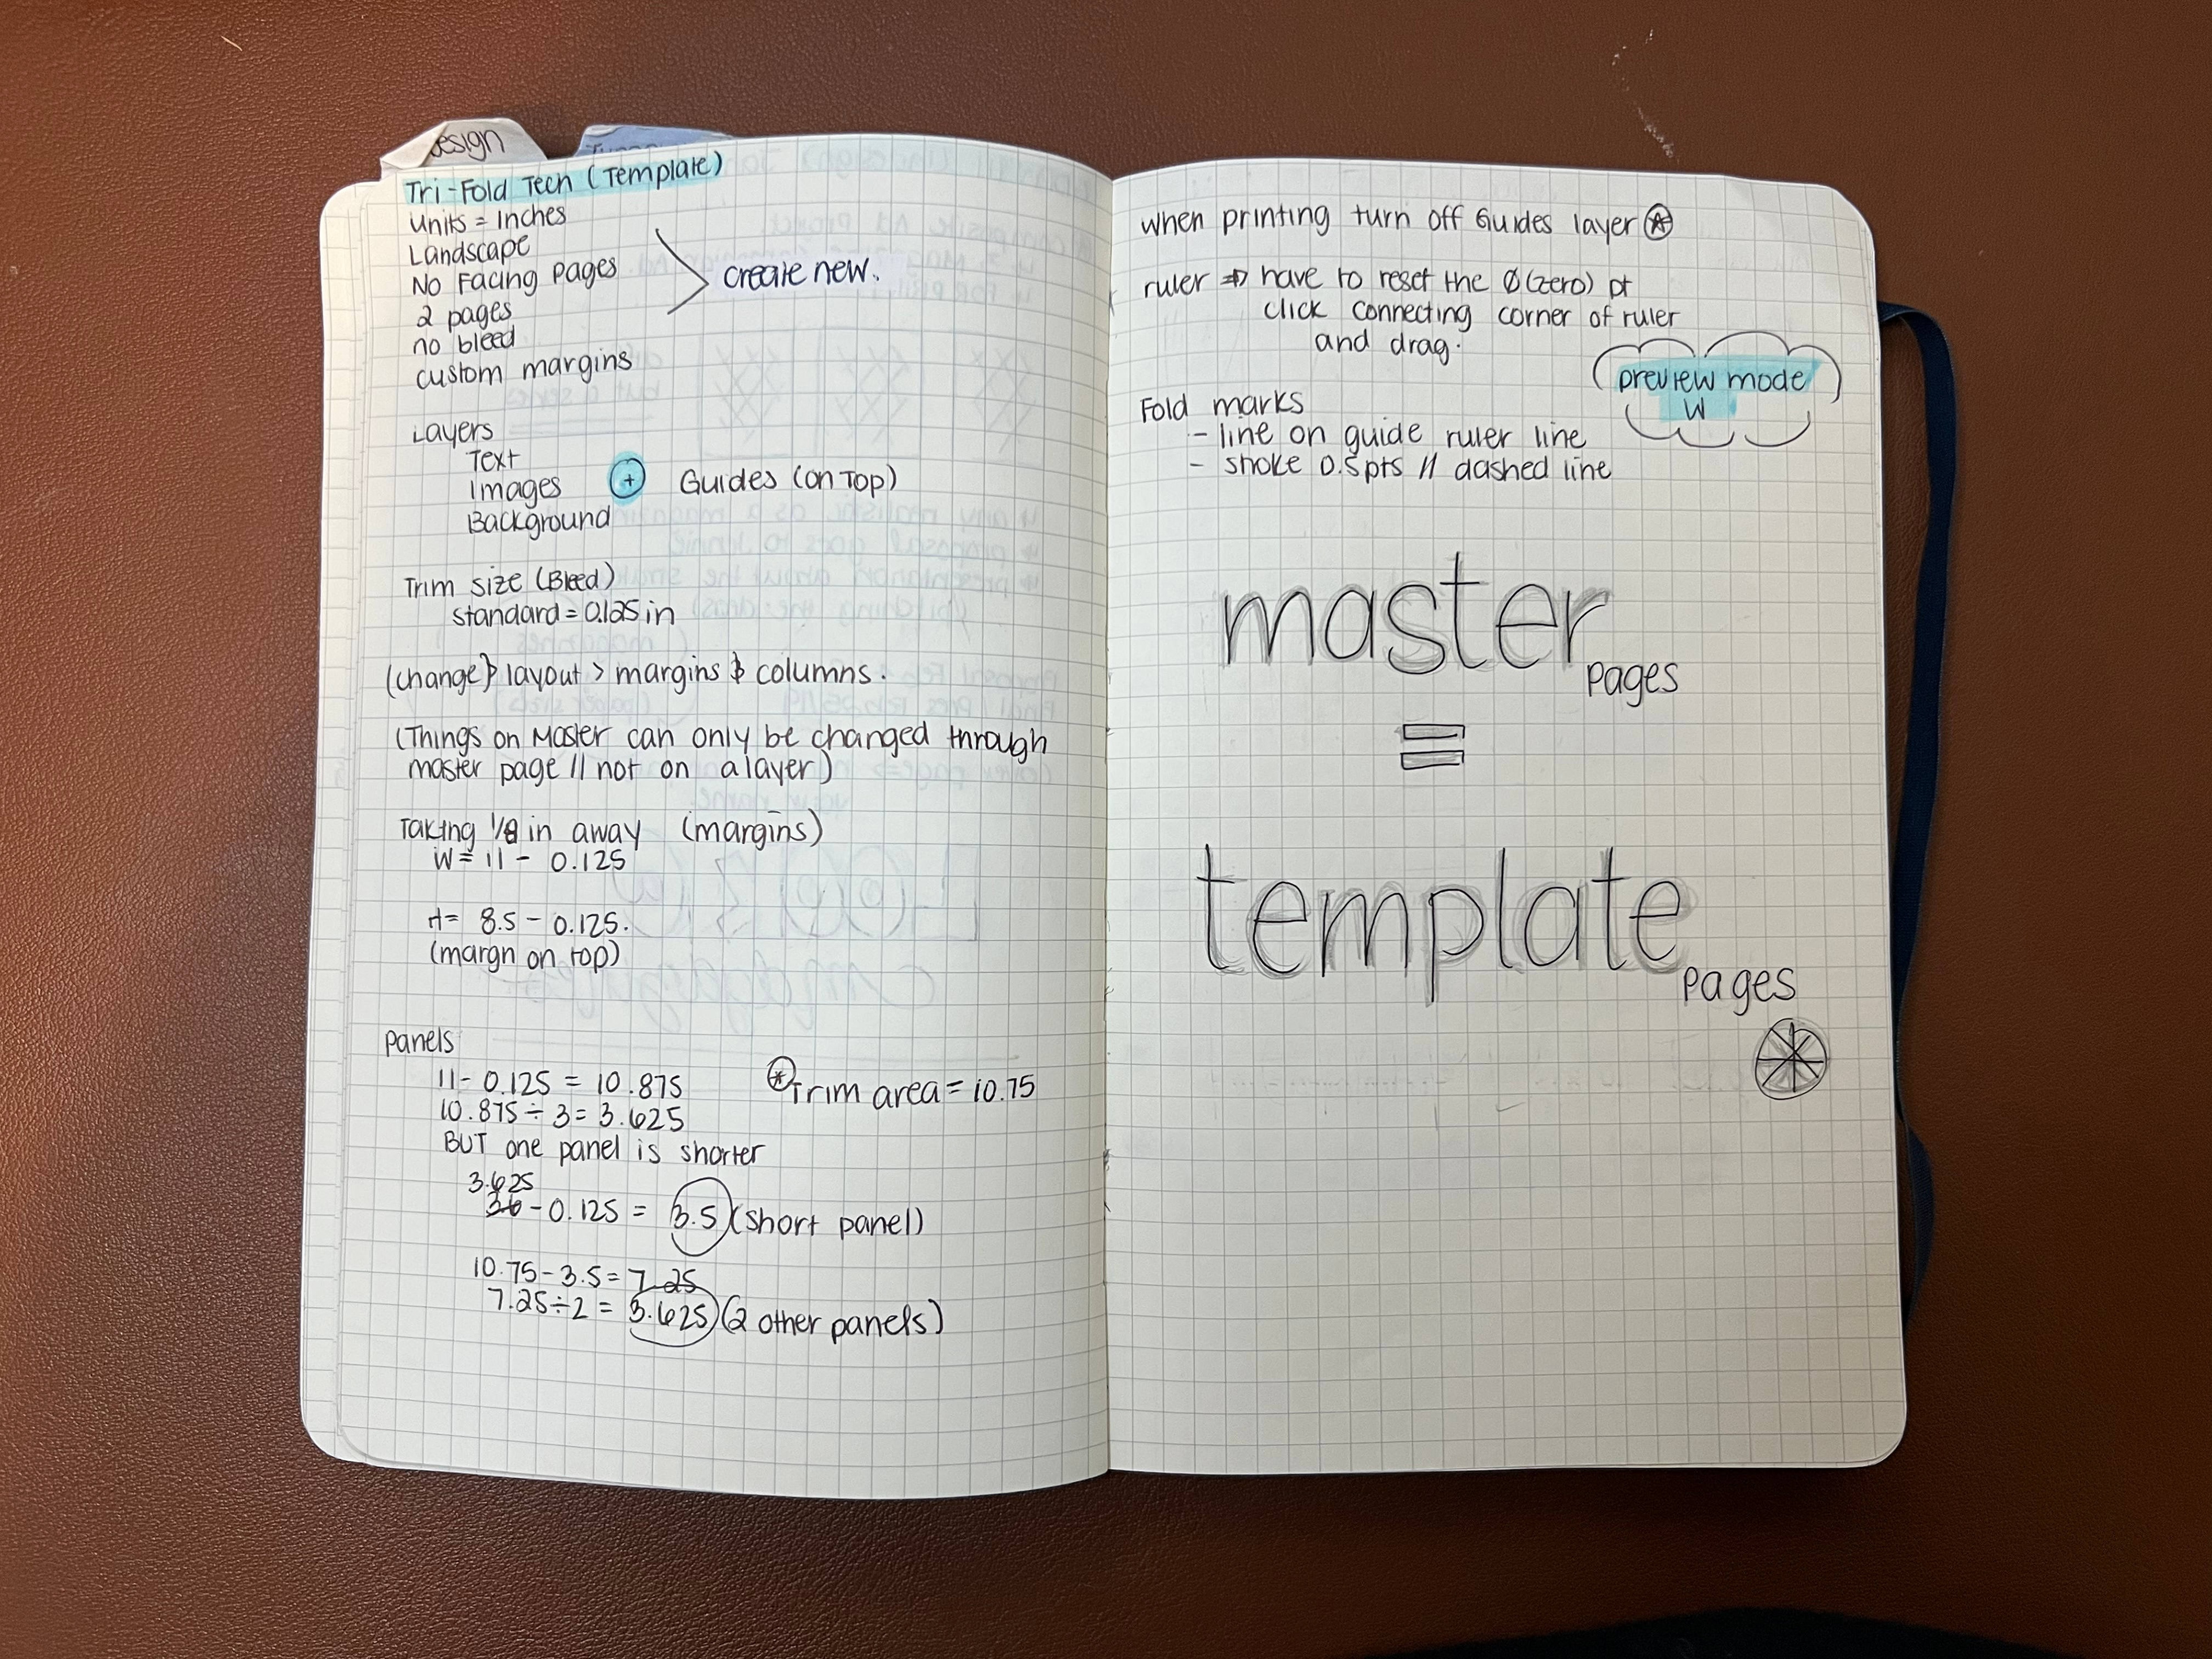 esign
Tri-Fold Tech (Template)
units = Inches
Landscape
No Facing Pages
2 pages
no bleed
custom margins
create new.
Layers
Text
Images
Background
+ Guides (on Top)
Trim size (Bleed)
standard = 0.125 in
(change) layout > margins & columns.
(Things on Master can only be changed through
master page // not on a layer)
Taking 1/8 in away (margins)
W = 11 - 0.125
H = 8.5 - 0.125.
(margn on top)
Panels
11 - 0.125 = 10.875
10.875 ÷ 3 = 3.625
BUT one panel is shorter
3.625
36 - 0.125 = 3.5 (short panel)
10.75 - 3.5 = 7.25
7.25 ÷ 2 = 3.625 (2 other panels)
* Trim area = 10.75
when printing turn off Guides layer *
ruler ⇒ have to reset the Ø (zero) pt
click connecting corner of ruler
and drag.
preview mode
W
Fold marks
- line on guide ruler line
- stroke 0.5pts // dashed line
master
pages
=
template
pages
*